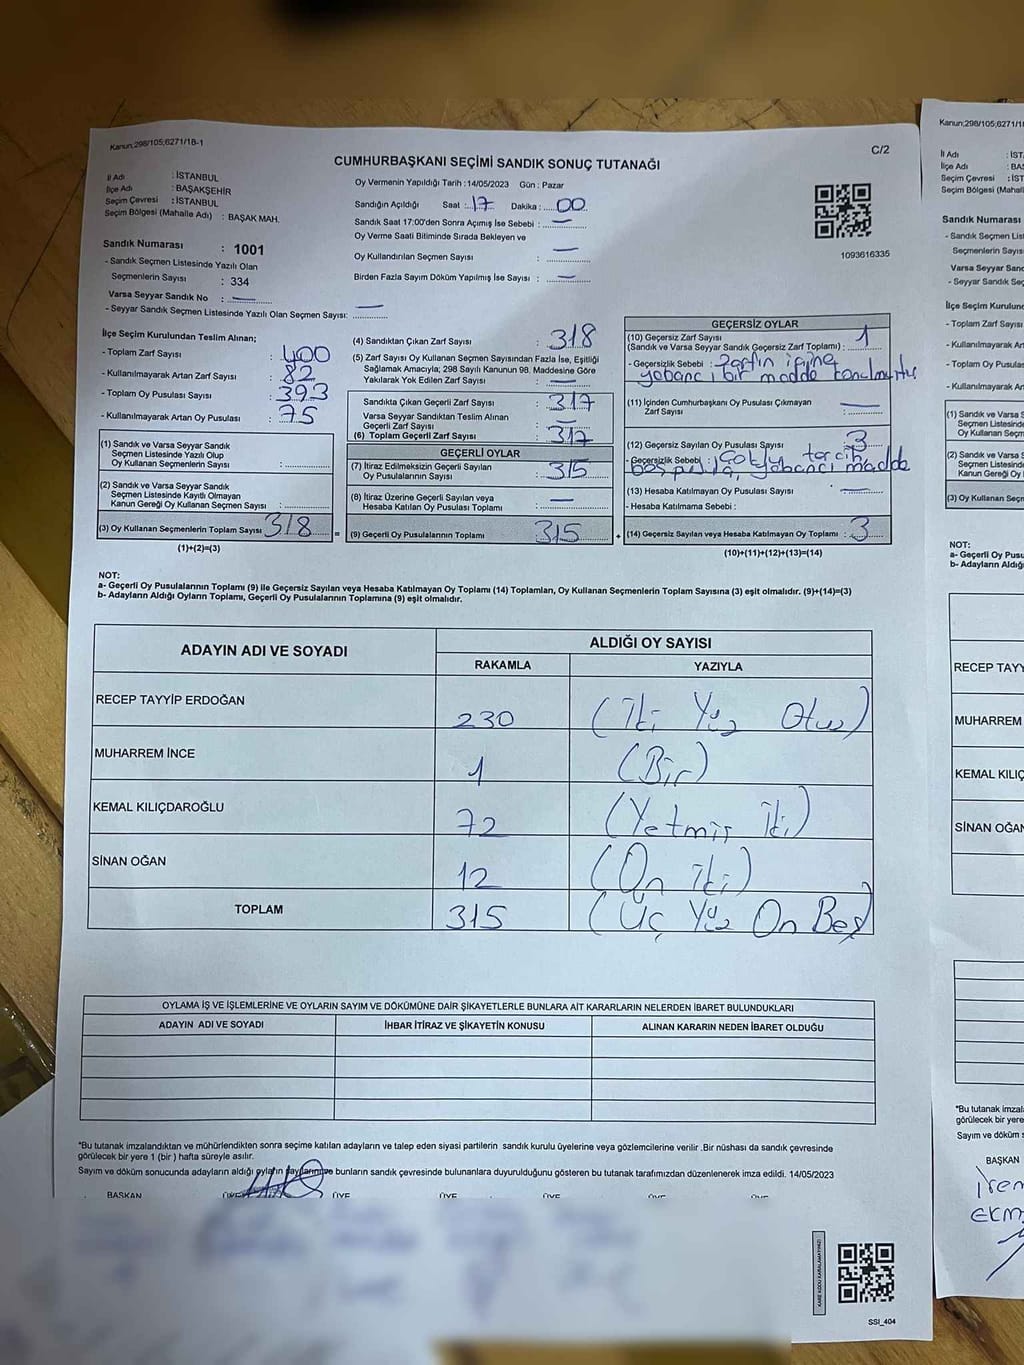 Kanun;298/105;6271/18-1
C/2
CUMHURBAŞKANI SEÇİMİ SANDIK SONUÇ TUTANAĞI
İl Adı : İSTANBUL
İlçe Adı : BAŞAKŞEHİR
Seçim Çevresi : İSTANBUL
Seçim Bölgesi (Mahalle Adı) : BAŞAK MAH.
Sandık Numarası : 1001
- Sandık Seçmen Listesinde Yazılı Olan
Seçmenlerin Sayısı : 334
Varsa Seyyar Sandık No : —
- Seyyar Sandık Seçmen Listesinde Yazılı Olan Seçmen Sayısı: —
Oy Vermenin Yapıldığı Tarih :14/05/2023 Gün : Pazar
Sandığın Açıldığı Saat : 17 Dakika : 00
Sandık Saat 17:00'den Sonra Açımış İse Sebebi : —
Oy Verme Saati Bitiminde Sırada Bekleyen ve
Oy Kullandırılan Seçmen Sayısı : —
Birden Fazla Sayım Döküm Yapılmış İse Sayısı : —
1093616335
İlçe Seçim Kurulundan Teslim Alınan;
- Toplam Zarf Sayısı : 400
- Kullanılmayarak Artan Zarf Sayısı : 82
- Toplam Oy Pusulası Sayısı : 393
- Kullanılmayarak Artan Oy Pusulası : 75
(1) Sandık ve Varsa Seyyar Sandık
Seçmen Listesinde Yazılı Olup
Oy Kullanan Seçmenlerin Sayısı :
(2) Sandık ve Varsa Seyyar Sandık
Seçmen Listesinde Kayıtlı Olmayan
Kanun Gereği Oy Kullanan Seçmen Sayısı :
(3) Oy Kullanan Seçmenlerin Toplam Sayısı 318
(1)+(2)=(3)
(4) Sandıktan Çıkan Zarf Sayısı : 318
(5) Zarf Sayısı Oy Kullanan Seçmen Sayısından Fazla İse, Eşitliği
Sağlamak Amacıyla; 298 Sayılı Kanunun 98. Maddesine Göre
Yakılarak Yok Edilen Zarf Sayısı : —
Sandıkta Çıkan Geçerli Zarf Sayısı : 317
Varsa Seyyar Sandıktan Teslim Alınan
Geçerli Zarf Sayısı : —
(6) Toplam Geçerli Zarf Sayısı : 317
GEÇERLİ OYLAR
(7) İtiraz Edilmeksizin Geçerli Sayılan
Oy Pusulalarının Sayısı : 315
(8) İtiraz Üzerine Geçerli Sayılan veya
Hesaba Katılan Oy Pusulası Toplamı : —
(9) Geçerli Oy Pusulalarının Toplamı 315
GEÇERSİZ OYLAR
(10) Geçersiz Zarf Sayısı
(Sandık ve Varsa Seyyar Sandık Geçersiz Zarf Toplamı) : 1
- Geçersizlik Sebebi : Zarfın içine
yabancı bir madde
(11) İçinden Cumhurbaşkanı Oy Pusulası Çıkmayan
Zarf Sayısı : —
(12) Geçersiz Sayılan Oy Pusulası Sayısı : 3
- Geçersizlik Sebebi : Çoklu tercih
boş pusula, yabancı madde
(13) Hesaba Katılmayan Oy Pusulası Sayısı : —
- Hesaba Katılmama Sebebi :
(14) Geçersiz Sayılan veya Hesaba Katılmayan Oy Toplamı : 3
(10)+(11)+(12)+(13)=(14)
NOT:
a- Geçerli Oy Pusulalarının Toplamı (9) ile Geçersiz Sayılan veya Hesaba Katılmayan Oy Toplamı (14) Toplamları, Oy Kullanan Seçmenlerin Toplam Sayısına (3) eşit olmalıdır. (9)+(14)=(3)
b- Adayların Aldığı Oyların Toplamı, Geçerli Oy Pusulalarının Toplamına (9) eşit olmalıdır.
ADAYIN ADI VE SOYADI
ALDIĞI OY SAYISI
RAKAMLA YAZIYLA
RECEP TAYYİP ERDOĞAN 230 (İki Yüz Otuz)
MUHARREM İNCE 1 (Bir)
KEMAL KILIÇDAROĞLU 72 (Yetmiş iki)
SİNAN OĞAN 12 (On iki)
TOPLAM 315 (Üç Yüz On Beş)
OYLAMA İŞ VE İŞLEMLERİNE VE OYLARIN SAYIM VE DÖKÜMÜNE DAİR ŞİKAYETLERLE BUNLARA AİT KARARLARIN NELERDEN İBARET BULUNDUKLARI
ADAYIN ADI VE SOYADI İHBAR İTİRAZ VE ŞİKAYETİN KONUSU ALINAN KARARIN NEDEN İBARET OLDUĞU
*Bu tutanak imzalandıktan ve mühürlendikten sonra seçime katılan adayların ve talep eden siyasi partilerin sandık kurulu üyelerine veya gözlemcilerine verilir .Bir nüshası da sandık çevresinde
görülecek bir yere 1 (bir ) hafta süreyle asılır.
Sayım ve döküm sonucunda adayların aldığı oyların sayılarını ve bunların sandık çevresinde bulunanlara duyurulduğunu gösteren bu tutanak tarafımızdan düzenlenerek imza edildi. 14/05/2023
BAŞKAN ÜYE ÜYE ÜYE ÜYE ÜYE ÜYE
KARE KODU KARALAMAYINIZ!
SSI_404
Kanun;298/105;6271/18
İl Adı : İST
İlçe Adı : BA
Seçim Çevresi : İST
Seçim Bölgesi (Mahal
Sandık Numarası
- Sandık Seçmen List
Seçmenlerin Sayıs
Varsa Seyyar Sand
- Seyyar Sandık Seç
İlçe Seçim Kurulund
- Toplam Zarf Sayısı
- Kullanılmayarak Ar
- Toplam Oy Pusula
- Kullanılmayarak
(1) Sandık ve Varsa S
Seçmen Listesind
Oy Kullanan Seçm
(2) Sandık ve Varsa
Seçmen Listesind
Kanun Gereği Oy
(3) Oy Kullanan Seçm
NOT:
a- Geçerli Oy Pusu
b- Adayların Aldığı
RECEP TAYY
MUHARREM
KEMAL KILIÇ
SİNAN OĞAN
*Bu tutanak imzala
görülecek bir yere
Sayım ve döküm s
BAŞKAN
İrem